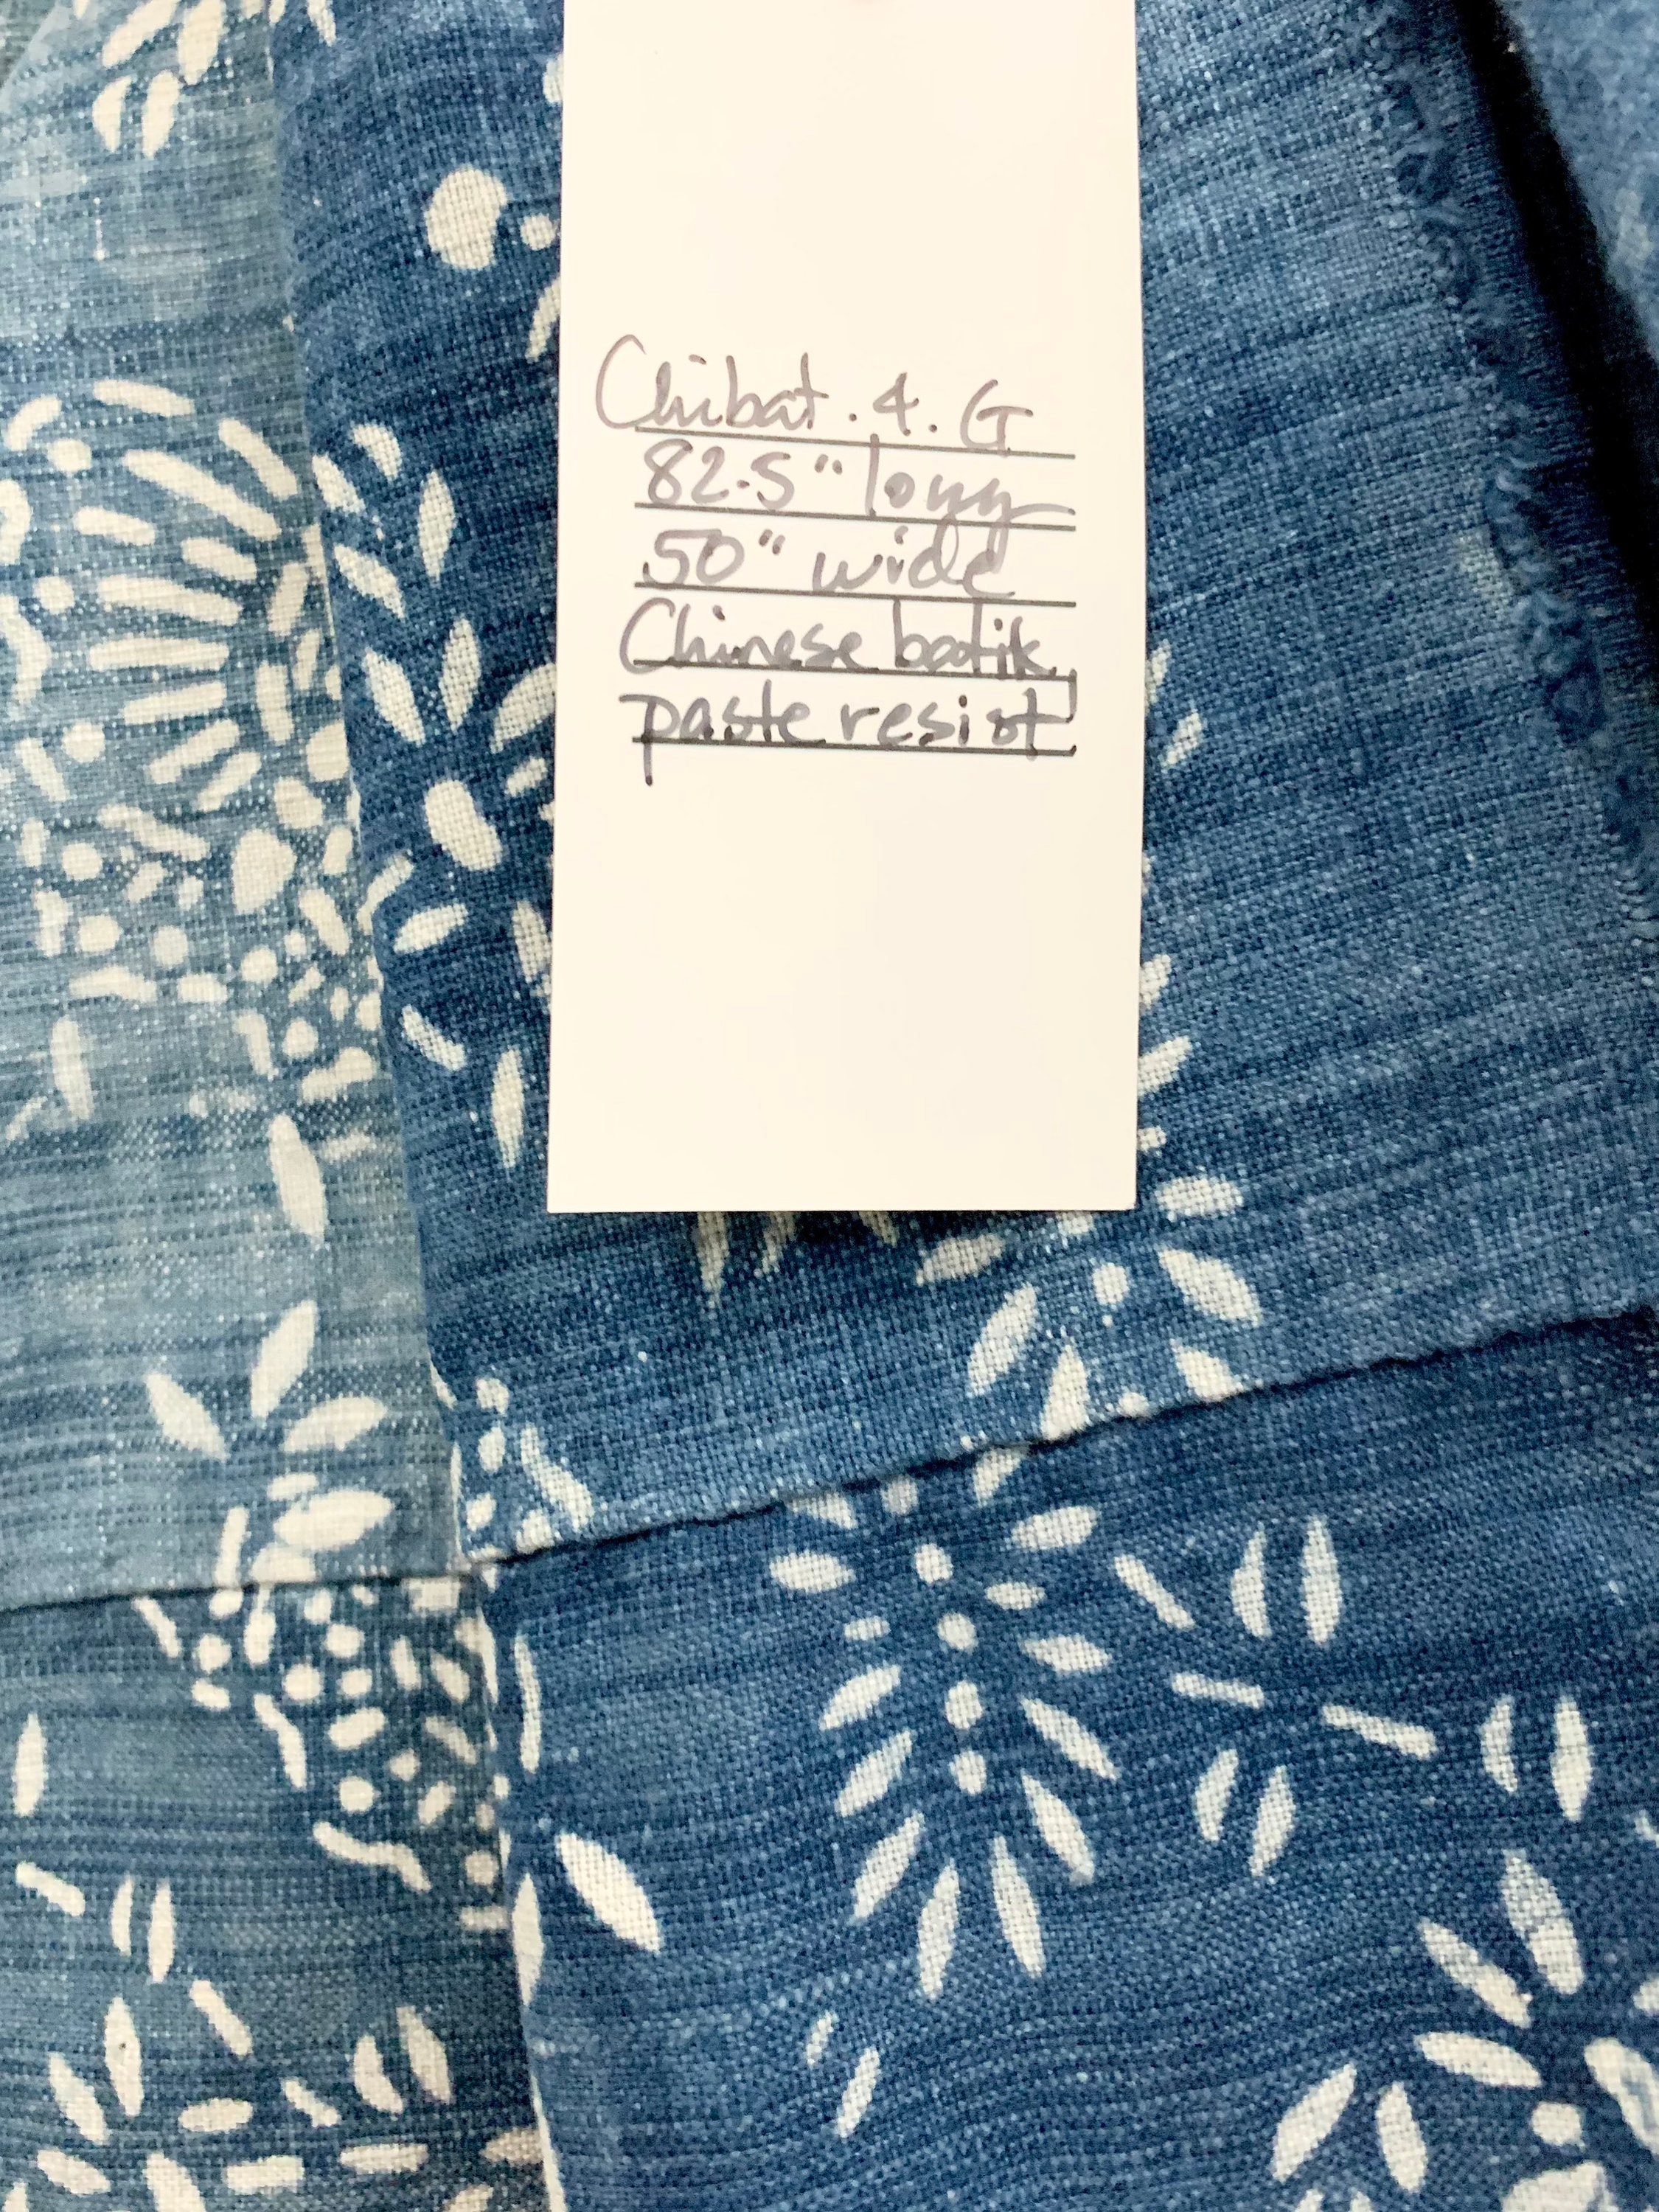 Chibat. 4. G
82.5" long
50" wide
Chinese batik
paste resist